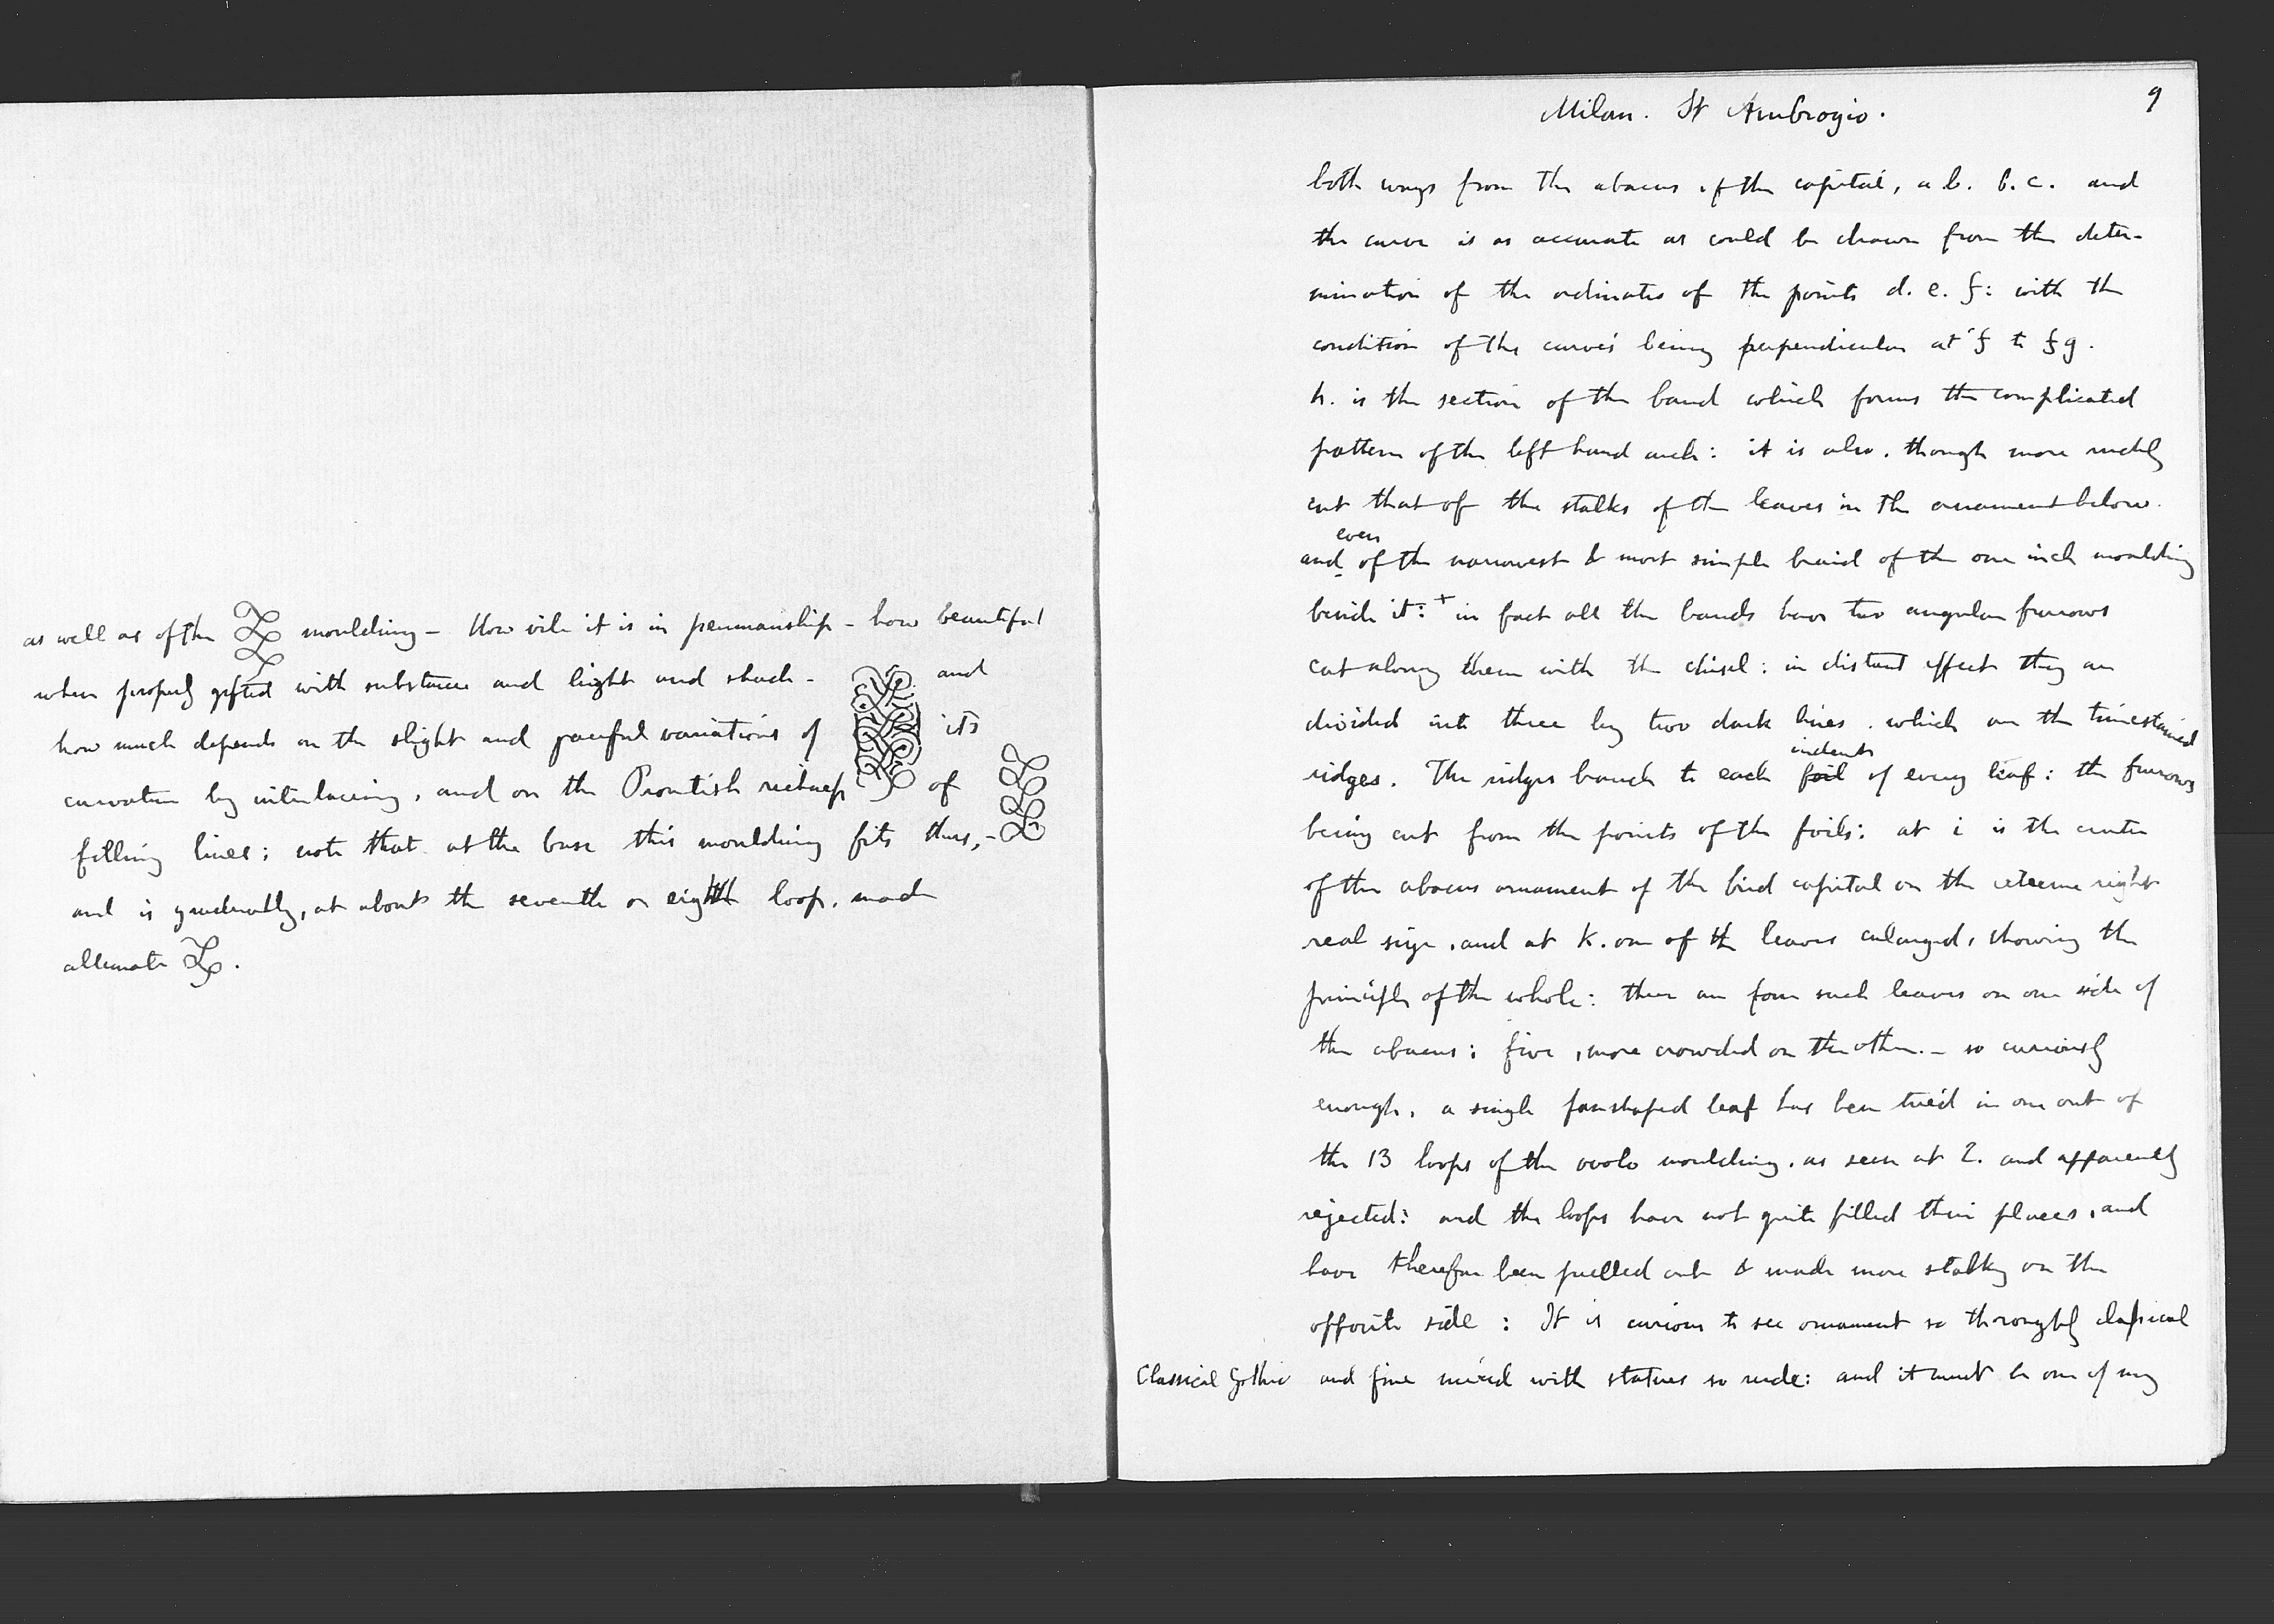 as well as of the moulding - How vile it is in penmanship - how beautiful
when properly gifted with substance and light and shade - and
how much depends on the slight and graceful variations of its
curvature by interlacing, and on the Proutish richness of
filling lines; note that at the base this moulding fits thus, -
and is gradually, at about the seventh or eighth loop, made
alternate .
9
Milan. St Ambrogio.
both ways from the abacus of the capital, a b. b. c. and
the curve is as accurate as could be drawn from the deter-
mination of the ordinates of the points d. e. f: with the
condition of the curves being perpendicular at f to f g.
h. is the section of the band which forms the complicated
pattern of the left hand arch: it is also, though more rudely
cut that of the stalks of the leaves in the ornament below.
even
and of the narrowest & most simple braid of the one inch moulding
beside it: + in fact all the bands have two angular furrows
cut along them with the chisel: in distant effect they are
divided into three by two dark lines. which are the timestained
indents
ridges. The ridges branch to each foil of every leaf: the furrows
being cut from the points of the foils: at i is the centre
of the abacus ornament of the bird capital on the extreme right
real size, and at k. one of the leaves enlarged, showing the
principle of the whole: there are four such leaves on one side of
the abacus; five, more crowded on the other. - so curiously
enough, a single fanshaped leaf has been tried in one out of
the 13 loops of the ovolo moulding. as seen at 2. and apparently
rejected: and the loops have not quite filled their places, and
have therefore been pulled out & made more stalky on the
opposite side: It is curious to see ornament so thoroughly classical
Classical Gothic and fine mixed with statues so rude: and it must be one of my